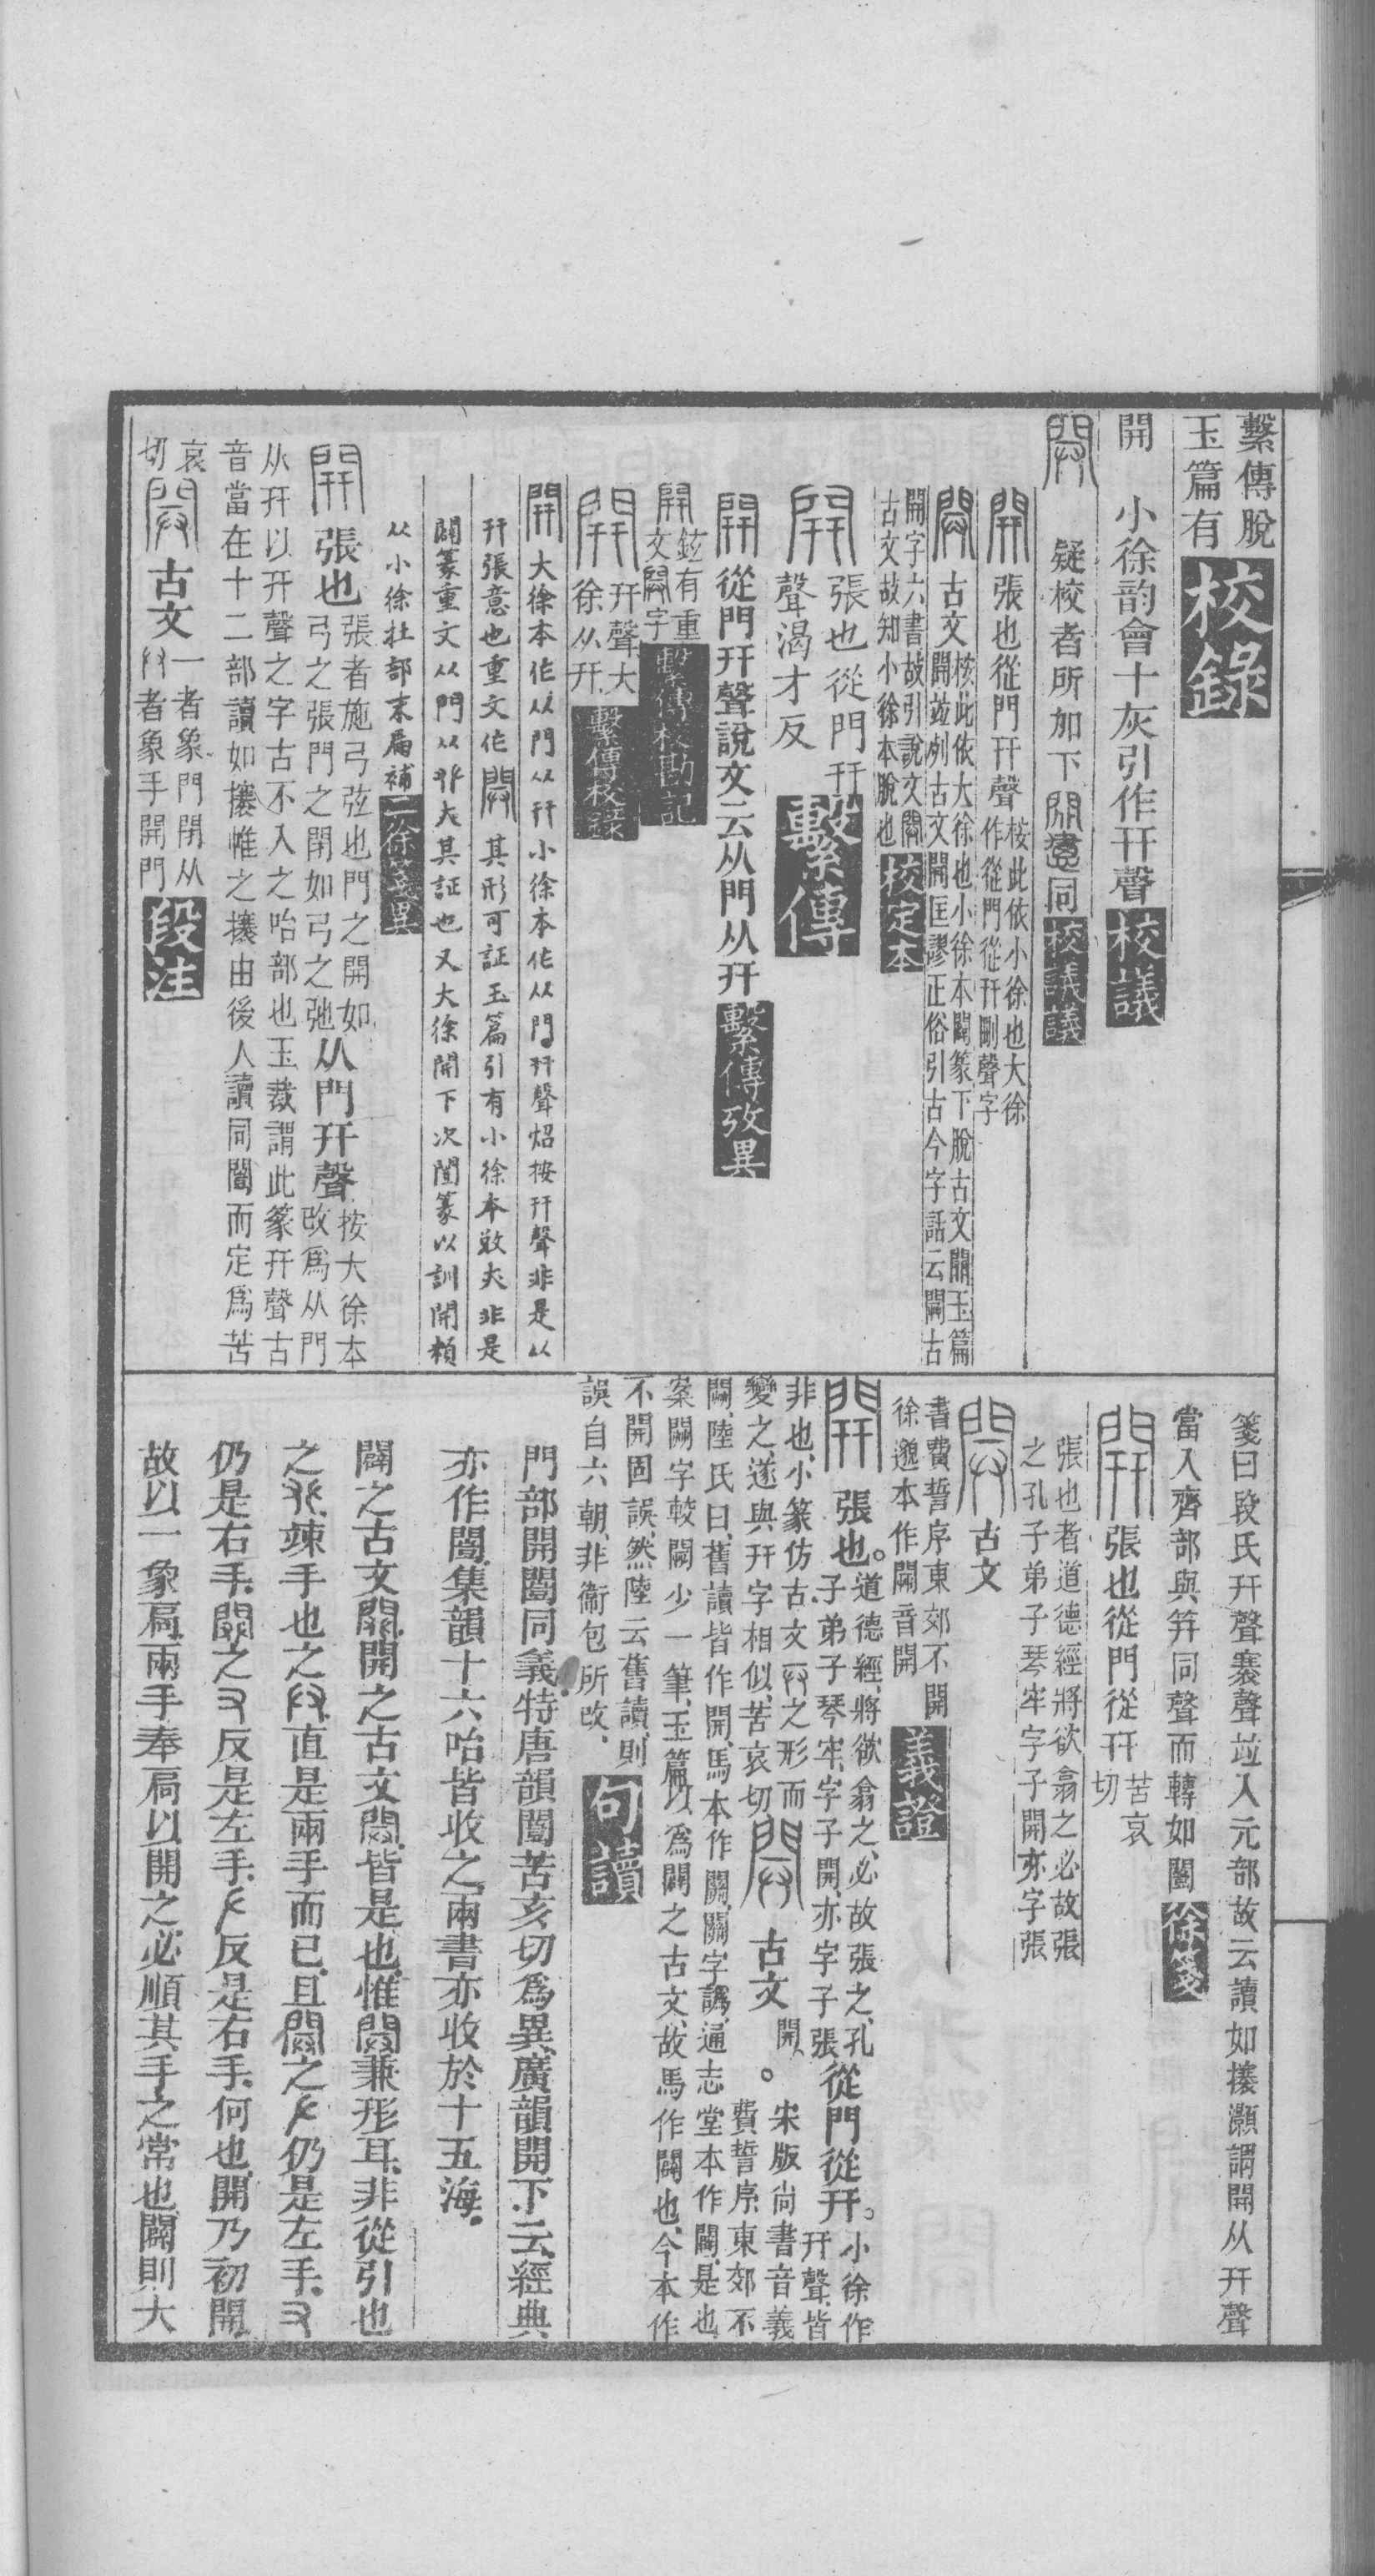 繫傳脫
玉篇有
校錄
開　小徐韵會十灰引作幵聲
校議
疑校者所加下閞闥同
校議議
開張也從門幵聲
桉此依小徐也大徐
作從門從幵刪聲字
古文
桉此依大徐也小徐本闢篆下脫古文開玉篇
開竝列古文開匡謬正俗引古今字詁云闢古
開字六書故引說文闢
古文故知小徐本脫也
校定本
開
張也從門幵
聲渴才反
繫傳
開從門幵聲說文云从門从幵
繫傳攷異
開
鉉有重
文字
繫傳校勘記
開
幵聲大
徐从幵
繫傳校錄
開大徐本作从門从幵小徐本作从門幵聲炤按幵聲非是以
幵張意也重文作其形可証玉篇引有小徐本敚失非是
闢篆重文从門从𠬜失其証也又大徐開下次闓篆以訓開類
从小徐社部末扁補
二徐箋異
開張也
張者施弓弦也門之開如
弓之張門之閉如弓之弛
从門幵聲
按大徐本
改爲从門
从幵以幵聲之字古不入之咍部也玉裁謂此篆幵聲古
音當在十二部讀如攐帷之攐由後人讀同闓而定爲苦
哀
切
古文
一者象門閉从
者象手開門
段注
箋曰段氏幵聲褰聲竝入元部故云讀如攐灝謂開从幵聲
當入齊部與笄同聲而轉如闓
徐箋
開張也從門從幵
苦哀
切
張也者道德經將欲翕之必故張
之孔子弟子琴牢字子開亦字張
古文
書費誓序東郊不開
徐邈本作闢音開
義證
開張也。
道德經、將欲翕之、必故張之、孔
子弟子琴牢、字子開、亦字子張
從門從幵。
小徐作
幵聲、皆
非也、小篆仿古文之形而
變之、遂與幵字相似、苦哀切
古文
開、
。
宋版尚書音義
費誓序東郊不
闢、陸氏曰、舊讀皆作開、馬本作闢、闢字譌、通志堂本作闢、是也
案闢字較開少一筆、玉篇以爲闢之古文、故馬作闢也、今本作
不開固誤、然陸云舊讀、則
誤自六朝、非衞包所改、
句讀
門部開闓同義、特唐韻闓苦亥切爲異、廣韻開下云、經典
亦作闓、集韻十六咍皆收之、兩書亦收於十五海。
闢之古文、開之古文、皆是也、惟兼形耳、非從引也
之、竦手也之、直是兩手而已、且之仍是左手、
仍是右手、之反是左手、反是右手、何也、開乃初開
故以一象扃、兩手奉扃以開之、必順其手之常也、闢則大